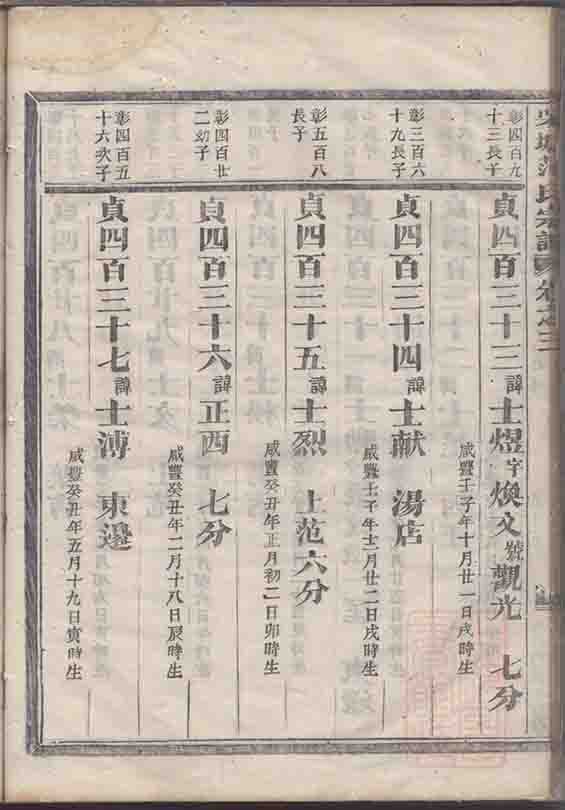 范氏宗譜 卷之三
彰四百九
十三長子
貞四百三十三諱士煜字煥文號觀光 七分
咸豐壬子年十月廿一日戌時生
彰三百六
十九長子
貞四百三十四諱士献 湯店
咸豐壬子年十二月廿二日戌時生
彰五百八
長子
貞四百三十五諱士烈 上范六分
咸豐癸丑年正月初二日卯時生
彰四百廿
二幼子
貞四百三十六諱正西 七分
咸豐癸丑年二月十八日辰時生
彰四百五
十六次子
貞四百三十七諱士溥 東邊
咸豐癸丑年五月十九日寅時生